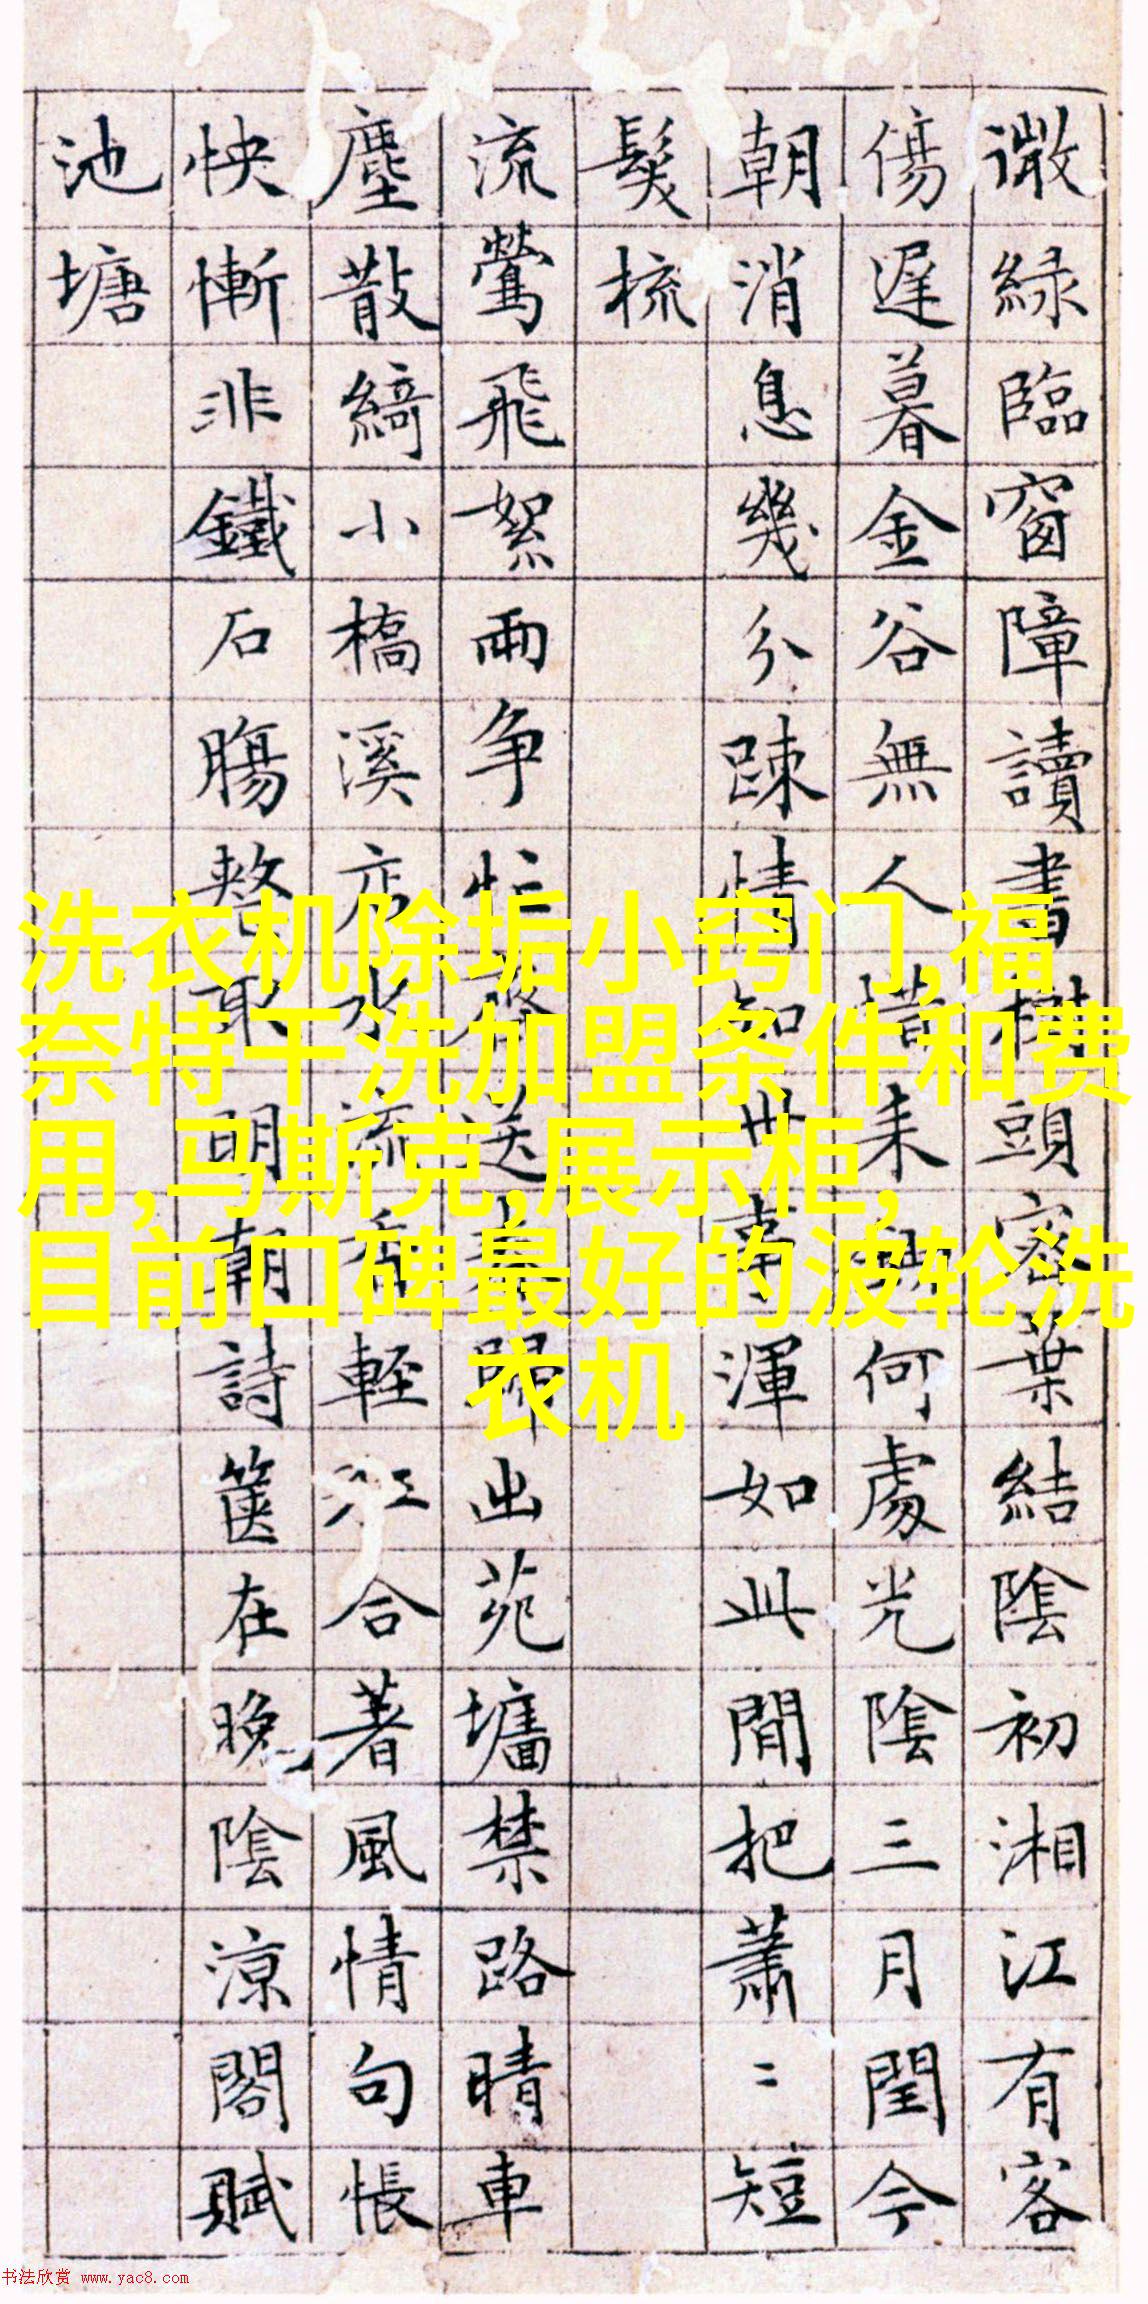 微綠臨窗障讀書棋頭密葉結陰初湘江有客
傷遲暮金谷無人惜未何處光陰三月閏今
朝消息幾分踈情知世事渾如此閒把蕭〻短
髮梳
流鶯飛絮兩争忙送春歸出苑墻禁路晴車
塵散綺小橋溪店水流香輕江合著風情句悵
怏慚非鐵石腸整取明朝詩篋在晚陰涼閣賦
池塘
洗衣机除垢小窍门,福
奈特干洗加盟条件和费
用,马斯克,展示柜,
目前口碑最好的波轮洗
衣机
书法欣赏 www.yac8.com